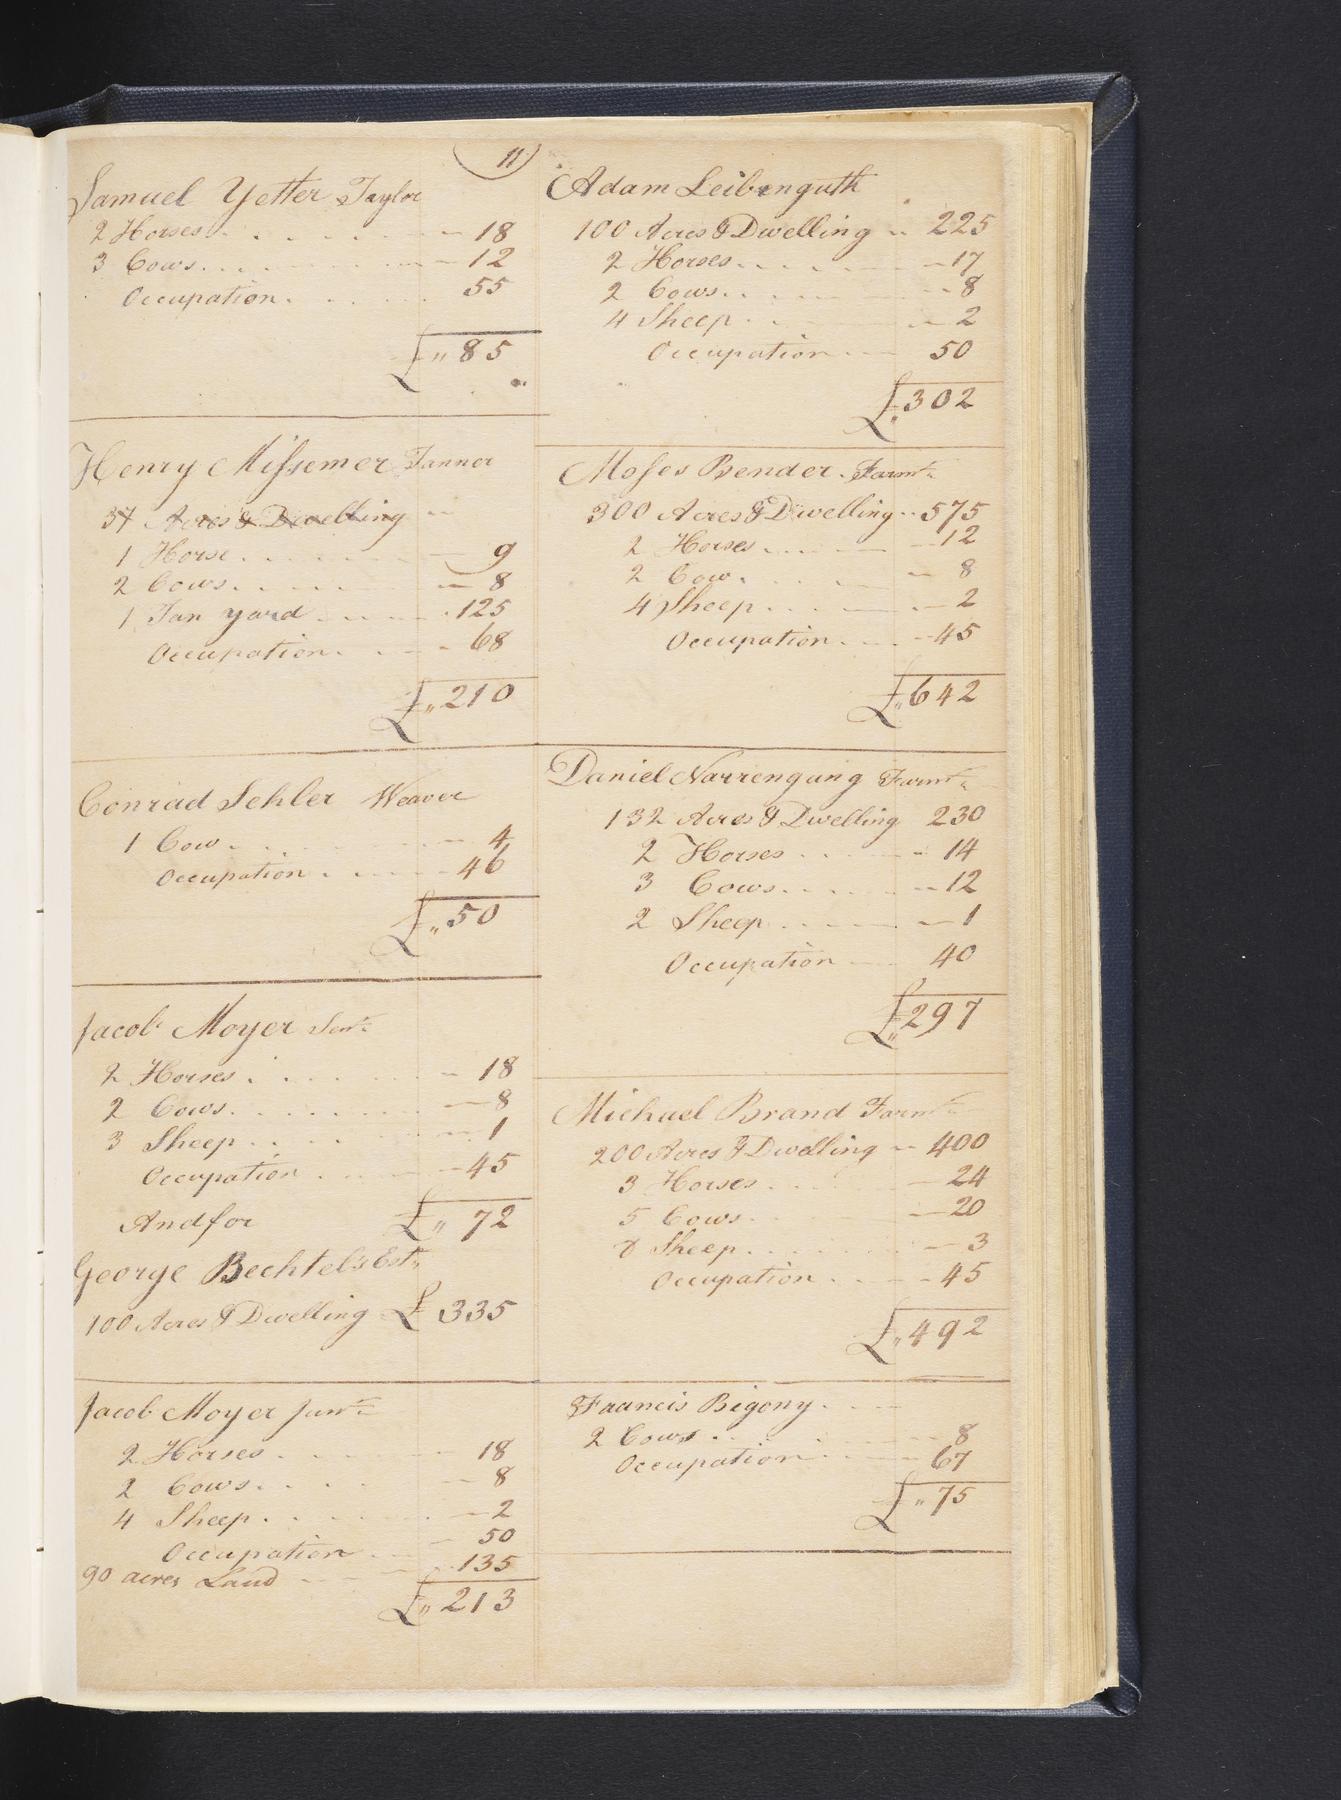 11
Samuel Yetter Taylor
2 Horses 18
3 Cows 12
Occupation 55
£ 85
Henry Missemer Tanner
37 Acres & Dwelling
1 Horse 9
2 Cows 8
1 Tan yard 125
Occupation 68
£ 210
Conrad Sehler Weaver
1 Cow 4
Occupation 46
£ 50
Jacob Moyer Senr
2 Horses 18
2 Cows 8
3 Sheep 1
Occupation 45
£ 72
And for
George Bechtel's Est
100 Acres & Dwelling £ 335
Jacob Moyer Junr
2 Horses 18
2 Cows 8
4 Sheep 2
Occupation 50
90 acres Land 135
£ 213
Adam Leibenguth
100 Acres & Dwelling 225
2 Horses 17
2 Cows 8
4 Sheep 2
Occupation 50
£ 302
Moses Bender Farmr
300 Acres & Dwelling 575
2 Horses 12
2 Cow 8
4 Sheep 2
Occupation 45
£ 642
Daniel Narrengang Farmr
132 Acres & Dwelling 230
2 Horses 14
3 Cows 12
2 Sheep 1
Occupation 40
£ 297
Michael Brand Farmr
200 Acres & Dwelling 400
3 Horses 24
5 Cows 20
Sheep 3
Occupation 45
£ 492
Francis Bigony
2 Cows 8
Occupation 67
£ 75